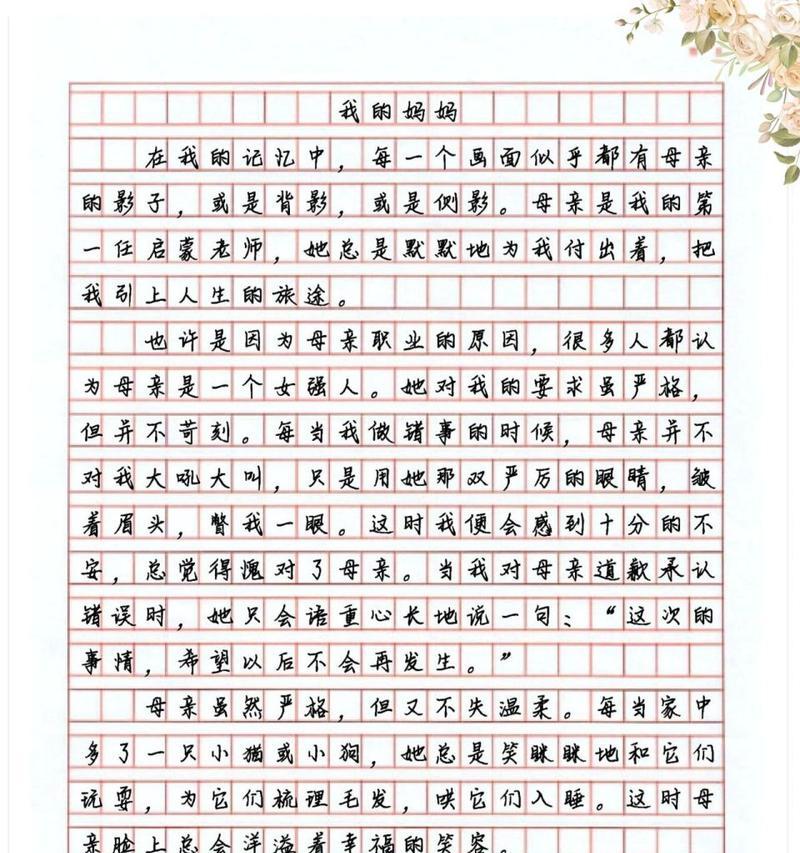 我的妈妈
在我的记忆中，每一个画面似乎都有母亲
的影子，或是背影，或是侧影。母亲是我的第
一任启蒙老师，她总是默默地为我付出着，把
我引上人生的旅途。
也许是因为母亲职业的原因，很多人都认
为母亲是一个女强人。她对我的要求虽严格，
但并不苛刻。每当我做错事的时候，母亲并不
对我大吼大叫，只是用她那双严厉的眼睛，皱
着眉头，瞥我一眼。这时我便会感到十分的不
安，总觉得愧对了母亲。当我对母亲道歉承认
错误时，她只会语重心长地说一句：“这次的
事情，希望以后不会再发生。”
母亲虽然严格，但又不失温柔。每当家中
多了一只小猫或小狗，她总是笑眯眯地和它们
玩耍，为它们梳理毛发，哄它们入睡。这时母
亲脸上总会洋溢着幸福的笑容。